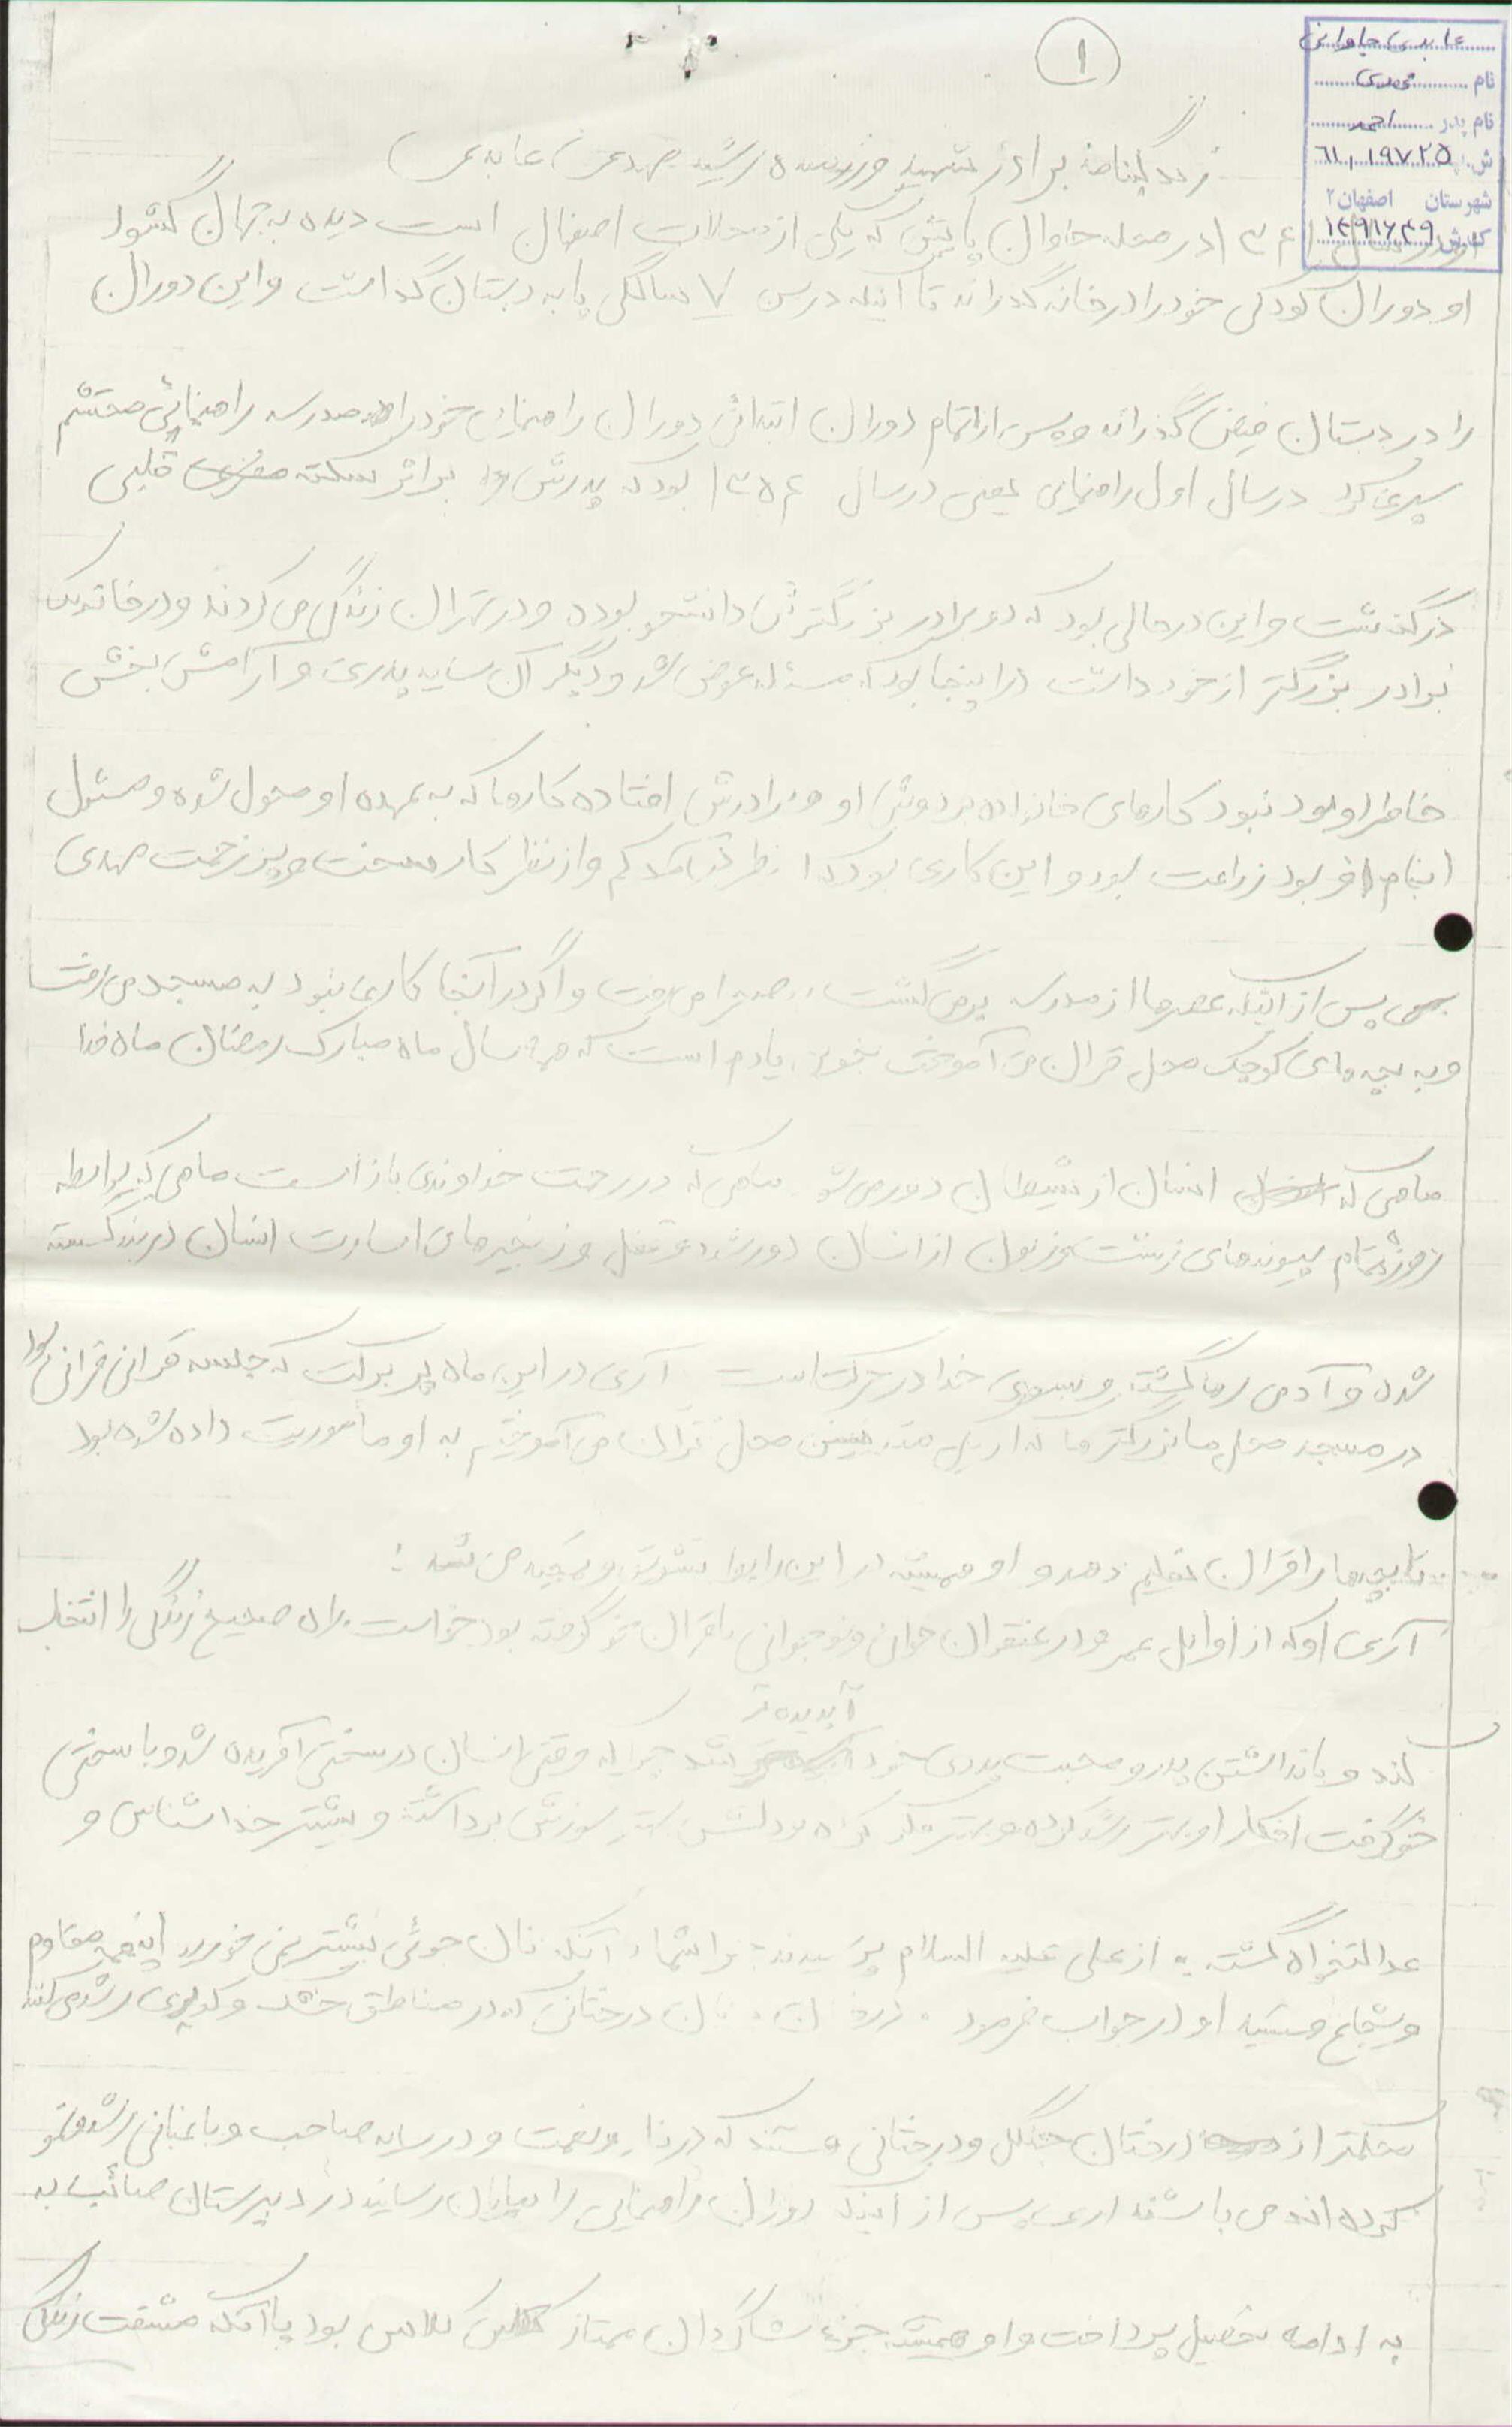 ۱
عابدی جاوانی
نام مهدی
نام پدر احمد
ش. ۶۱,۱۹۷۲۵
شهرستان اصفهان ۲
کد ش ۱۲۹۸۷۴۹
زندگینامه برادر شهید مهدی عابدی
او در سال ۱۳۴۱ در محله جاوان پائین که یکی از محلات اصفهان است دیده به جهان گشود
او دوران کودکی خود را در خانه گذراند تا آنکه در سن ۷ سالگی پا به دبستان گذاشت و این دوران
را در دبستان فیض گذرانده و پس از اتمام دوران ابتدائی دوران راهنمایی خود را مدرسه راهنمائی محتشم
سپری کرد در سال اول راهنمایی یعنی در سال ۱۳۵۴ بود که پدرش بر اثر سکته قلبی
درگذشت و این در حالی بود که دو برادر بزرگترش دانشجو بوده و در تهران زندگی می کردند و در خانه یک
برادر بزرگتر از خود داشت در اینجا بود که مسئله عوض شد و دیگر آن سایه پدری و آرامش بخش
خاطر او بود نبود کارهای خانواده بر دوش او و برادرش افتاده کارها که به عهده او محول شده و مسئول
انجام بود زراعت بود و این کاری بود که از نظر کم و از نظر کار سخت و پر زحمت مهدی
پس از آنکه عصرها از مدرسه برمی گشت به صحرا می رفت و اگر در آنجا کاری نبود به مسجد می رفت
و به بچه های کوچک محل قرآن می آموخت بخوبی یادم است که همه سال ماه مبارک رمضان ماه خدا
ماهی که انسان از شیطان دور می شود ماهی که در رحمت خداوندی باز است ماهی که بواسطه
روزه تمام پیوندهای زشت و زبون از انسان دور شده و قفل و زنجیرهای اسارت انسان در بند گسسته
شده و آدمی رها گشته و بسوی خدا در حرکت است آری در این ماه پر برکت که جلسه قرائت قرآنی بود
در مسجد محل ما بزرگترها که از محل قرآن می آموختیم به او مأموریت داده شده بود
تا بچه ها را قرآن تعلیم دهد و او همیشه در این راه تشویق و می شد :
آری او که از اوایل عمر و در عنفوان جوانی و نوجوانی با قرآن خو گرفته بود خواست راه صحیح زندگی را انتخاب
کند و با نداشتن پدر و محبت پدری خود آبدیده تر شد چرا که وقتی انسان در سختی آفریده شد و با سختی
خو گرفت افکار او بهتر رشد کرده و بهتر فکر کرده سوزش برداشته و بیشتر خداشناس و
عدالتخواه گشته . از علی علیه السلام پرسیدند چرا شما با آنکه نان جوئی بیشتر نمی خورید اینهمه مقاوم
و شجاع هستید او در جواب فرمود . درختانی که در مناطق خشک و کویری رشد می کنند
محکمتر از درختان جنگل و درختانی هستند که در ناز و نعمت و در سایه صاحب و باغبانی رشد و نمو
کرده اند می باشند آری پس از اینکه دوران راهنمایی را بپایان رسانید در دبیرستان صائب به
به ادامه تحصیل پرداخت و او همیشه جزء شاگردان ممتاز کلاس بود با آنکه مشقت زندگی